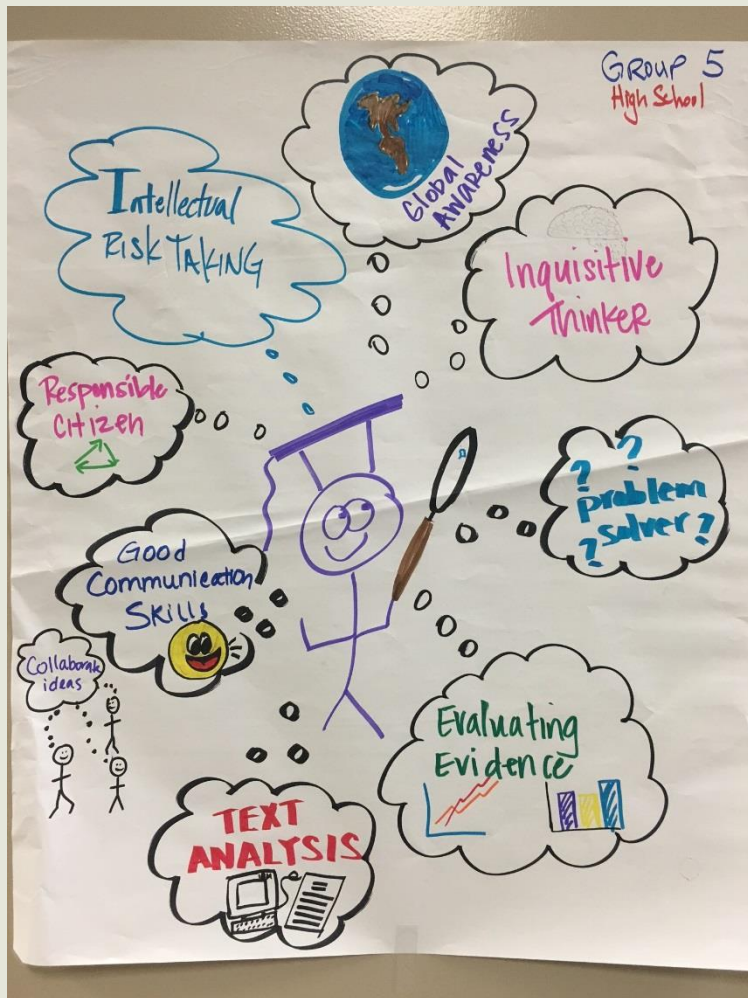 GROUP 5
High School
Global
AWARENESS
Intellectual
RISK TAKING
Inquisitive
Thinker
Responsible
Citizen
? ?
problem
solver?
?
Good
Communication
Skills
Collaborate
ideas
Evaluating
Evidence
TEXT
ANALYSIS